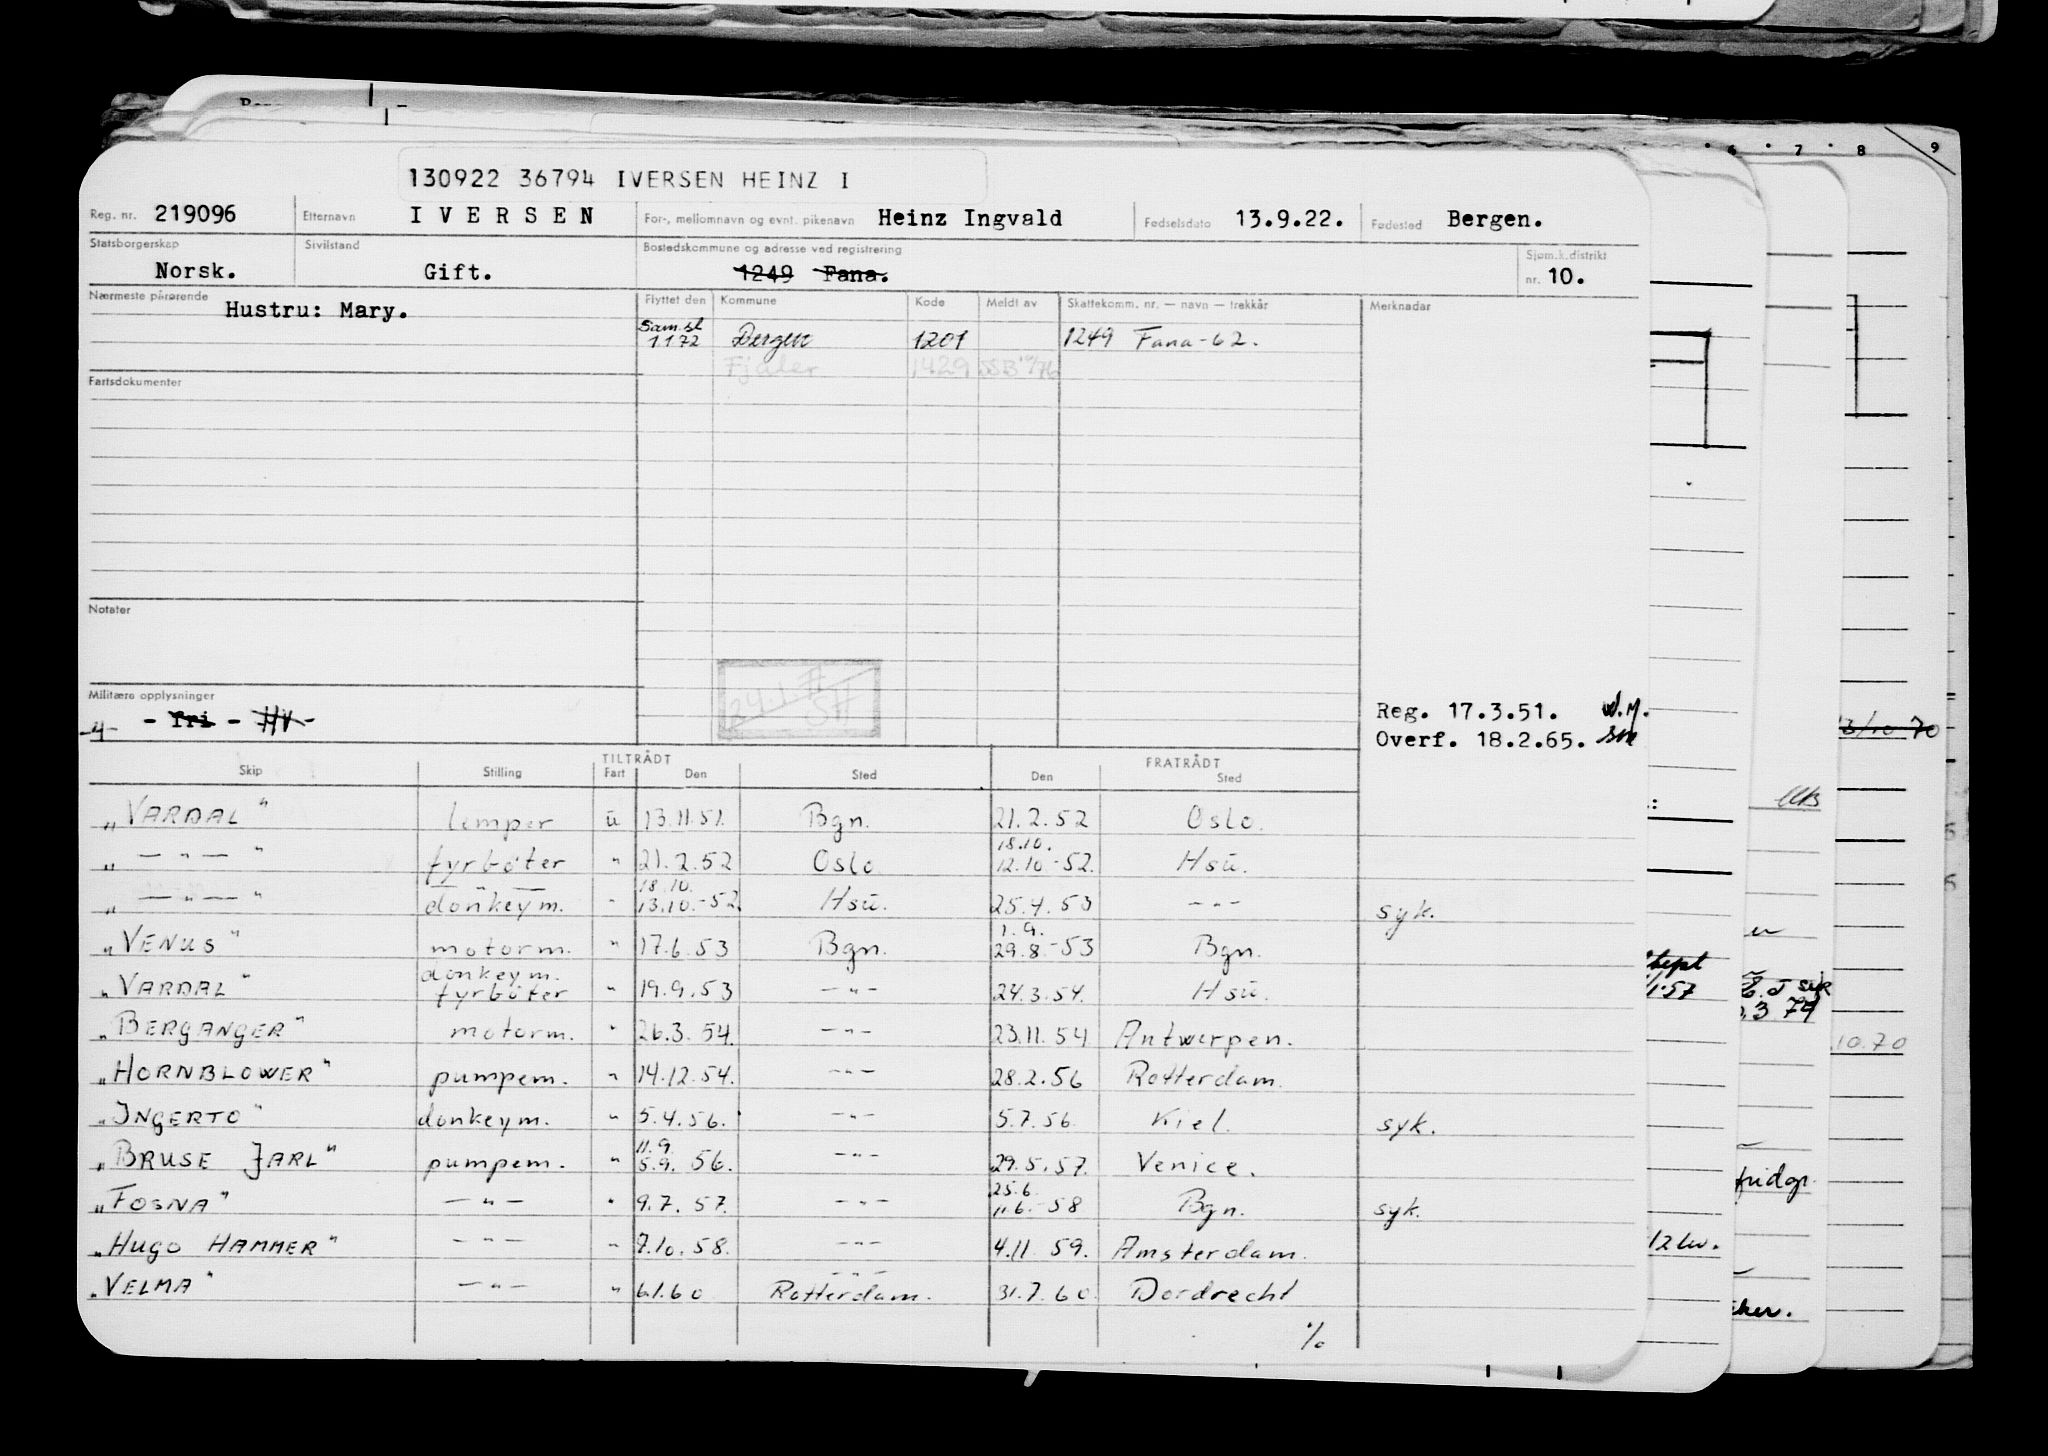 130922 36794 IVERSEN HEINZ I
Reg. nr. 219096 Etternavn I V E R S E N For-, mellomnavn og evnt. pikenavn Heinz Ingvald Fødselsdato 13.9.22. Fødested Bergen.
Statsborgerskap Sivilstand Bostedskommune og adresse ved registrering Sjøm.k.distrikt
Norsk. Gift. 1249 Fana. nr. 10.
Nærmeste pårørende Hustru: Mary. Flyttet den Kommune Kode Meldt av Skattekomm. nr. — navn — trekkår Merknader
Sam.sl
1172 Bergen 1201 1249 Fana-62.
Fjaler 1429
Fartsdokumenter
Notater
Militære opplysninger
-4- - fri - HV-
Reg. 17.3.51. W.M.
Overf. 18.2.65.
TILTRÅDT FRATRÅDT
Skip Stilling Fart Den Sted Den Sted
„VARDAL" lemper u 13.11.51. Bgn. 21.2.52 Oslo.
18.10.
„ — " — " fyrbøter " 21.2.52 Oslo 12.10.-52. Hsu.
18.10.
„ — " — " donkeym. " 13.10.-52. Hsu. 25.4.53 — " — syk.
1.9.
„VENUS" motorm. " 17.6.53 Bgn. 29.8.-53 Bgn.
donkeym.
„VARDAL" fyrbøter " 19.9.53 — " — 24.3.54. Hsu.
„BERGANGER" motorm. " 26.3.54. — " — 23.11.54 Antwerpen.
„HORNBLOWER" pumpem. " 14.12.54. — " — 28.2.56 Rotterdam.
„INGERTO" donkeym. " 5.4.56. — " — 5.7.56. Kiel. syk.
11.9.
„BRUSE JARL" pumpem. " 5.9.56. — " — 29.5.57. Venice.
25.6.
„FOSNA" — " — " 9.7.57. — " — 11.6.-58 Bgn. syk.
„HUGO HAMMER" — " — " 7.10.58. — " — 4.11.59. Amsterdam.
— " —
„VELMA" — " — " 6.1.60 Rotterdam. 31.7.60. Dordrecht
%
6 7 8 9
13/10 70
10.70
3 74
12 lu.